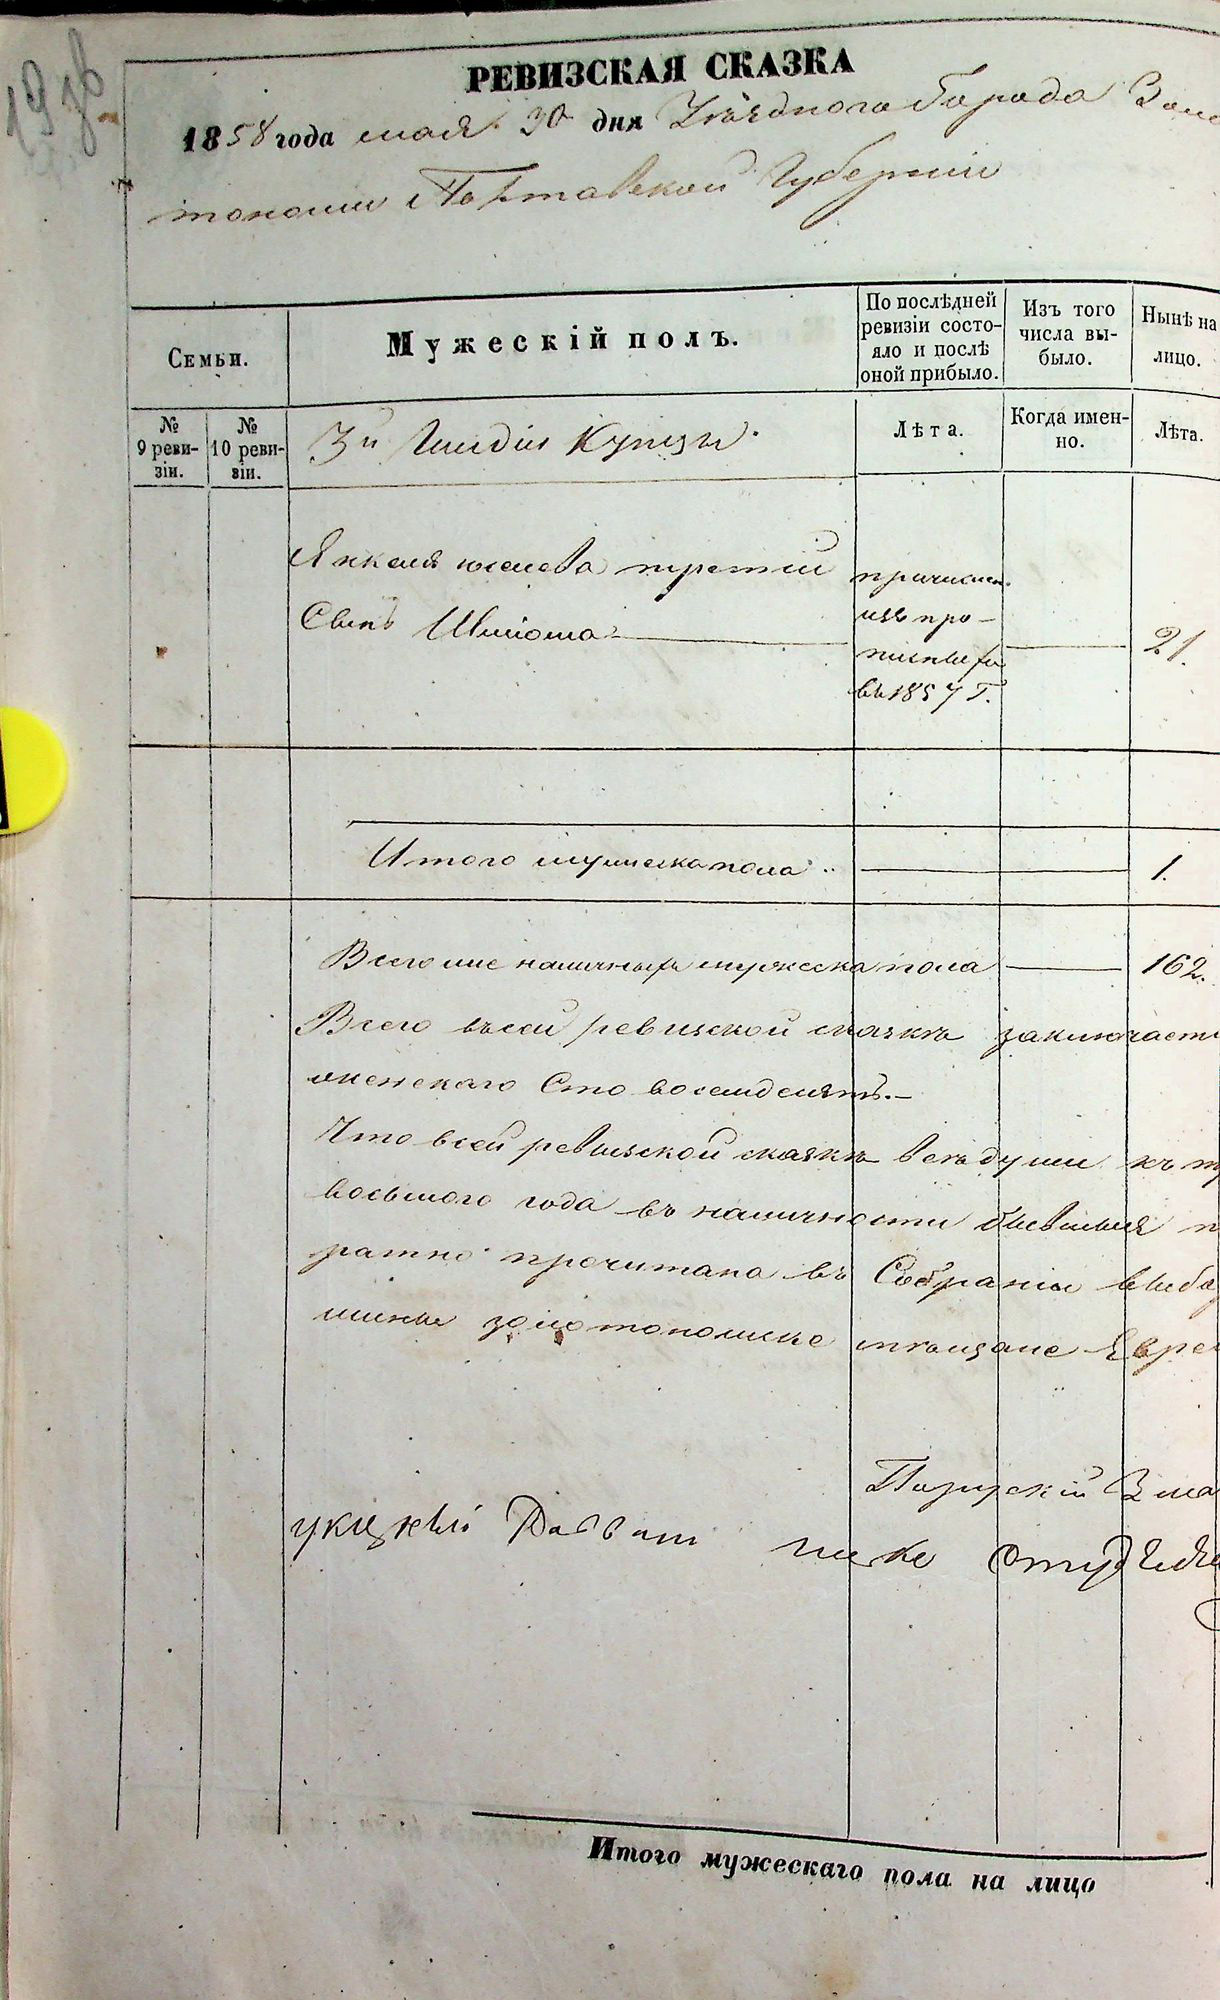 РЕВИЗСКАЯ СКАЗКА
1858 года мая 30 дня Уѣзднаго Города Золо
тоноши Полтавской Губерніи
Семьи.
Мужескій полъ.
По послѣдней ревизіи состояло и послѣ оной прибыло.
Изъ того числа выбыло.
Нынѣ на лицо.
№ 9 ревизіи.
№ 10 ревизіи.
3й Гильдіи Купцы
Лѣта.
Когда именно.
Лѣта.
третій
Сынъ
причислен
изъ про-
въ 1857 г.
21.
Итого мужеска пола
1.
Всего же наличныхъ мужеска пола
162.
Всего въ сей ревизской сказкѣ заключаетс
женскаго Сто восемдесятъ.
Что в сей ревизской сказкѣ всѣ души къ
восьмого года въ наличности бывшія п
ратно прочитана въ Собраніи выбо
золотоношскіе мѣщане Евре
Итого мужескаго пола на лицо